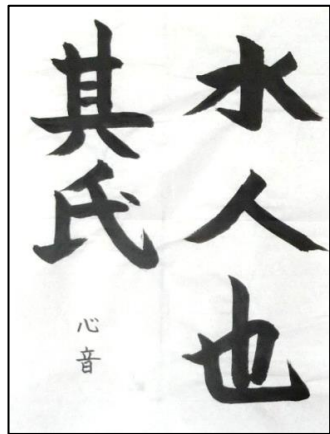 水人也
其氏
心音